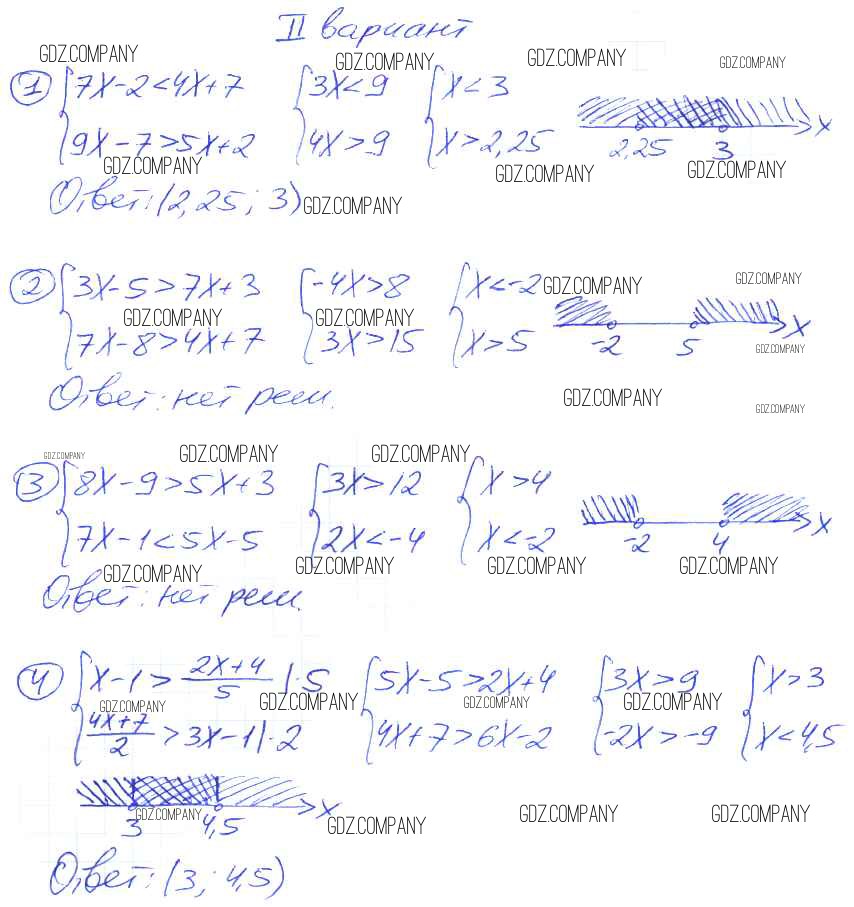 II вариант
GDZ.COMPANY GDZ.COMPANY GDZ.COMPANY GDZ.COMPANY
① { 7x-2<4x+7 { 3x<9 { x<3
9x-7>5x+2 4x>9 x>2,25 2,25 3 x
GDZ.COMPANY GDZ.COMPANY GDZ.COMPANY
Ответ: (2,25; 3) GDZ.COMPANY
② { 3x-5>7x+3 { -4x>8 { x<-2 GDZ.COMPANY GDZ.COMPANY
GDZ.COMPANY GDZ.COMPANY
7x-8>4x+7 3x>15 x>5 -2 5 x
GDZ.COMPANY
Ответ: нет реш. GDZ.COMPANY GDZ.COMPANY
GDZ.COMPANY GDZ.COMPANY GDZ.COMPANY
③ { 8x-9>5x+3 { 3x>12 { x>4
7x-1<5x-5 2x<-4 x<-2 -2 4 x
GDZ.COMPANY GDZ.COMPANY GDZ.COMPANY GDZ.COMPANY
Ответ: нет реш.
④ { x-1>(2x+4)/5 |·5 { 5x-5>2x+4 { 3x>9 { x>3
GDZ.COMPANY GDZ.COMPANY GDZ.COMPANY GDZ.COMPANY
(4x+7)/2>3x-1|·2 4x+7>6x-2 -2x>-9 x<4,5
3 4,5 x
GDZ.COMPANY GDZ.COMPANY GDZ.COMPANY GDZ.COMPANY
Ответ: (3; 4,5)